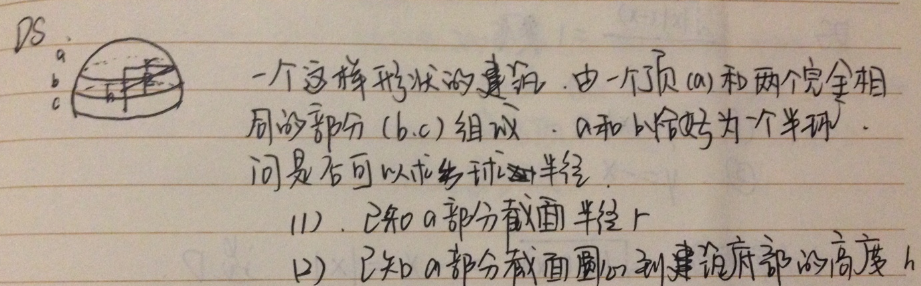 DS.
a
b
c
r
h
一个这样形状的建筑.由一个顶(a)和两个完全相
同的部分(b.c)组成.a和b恰好为一个半球.
问是否可以求出球半径.
(1).已知a部分截面半径r
(2)已知a部分截面圆心到建筑底部的高度h